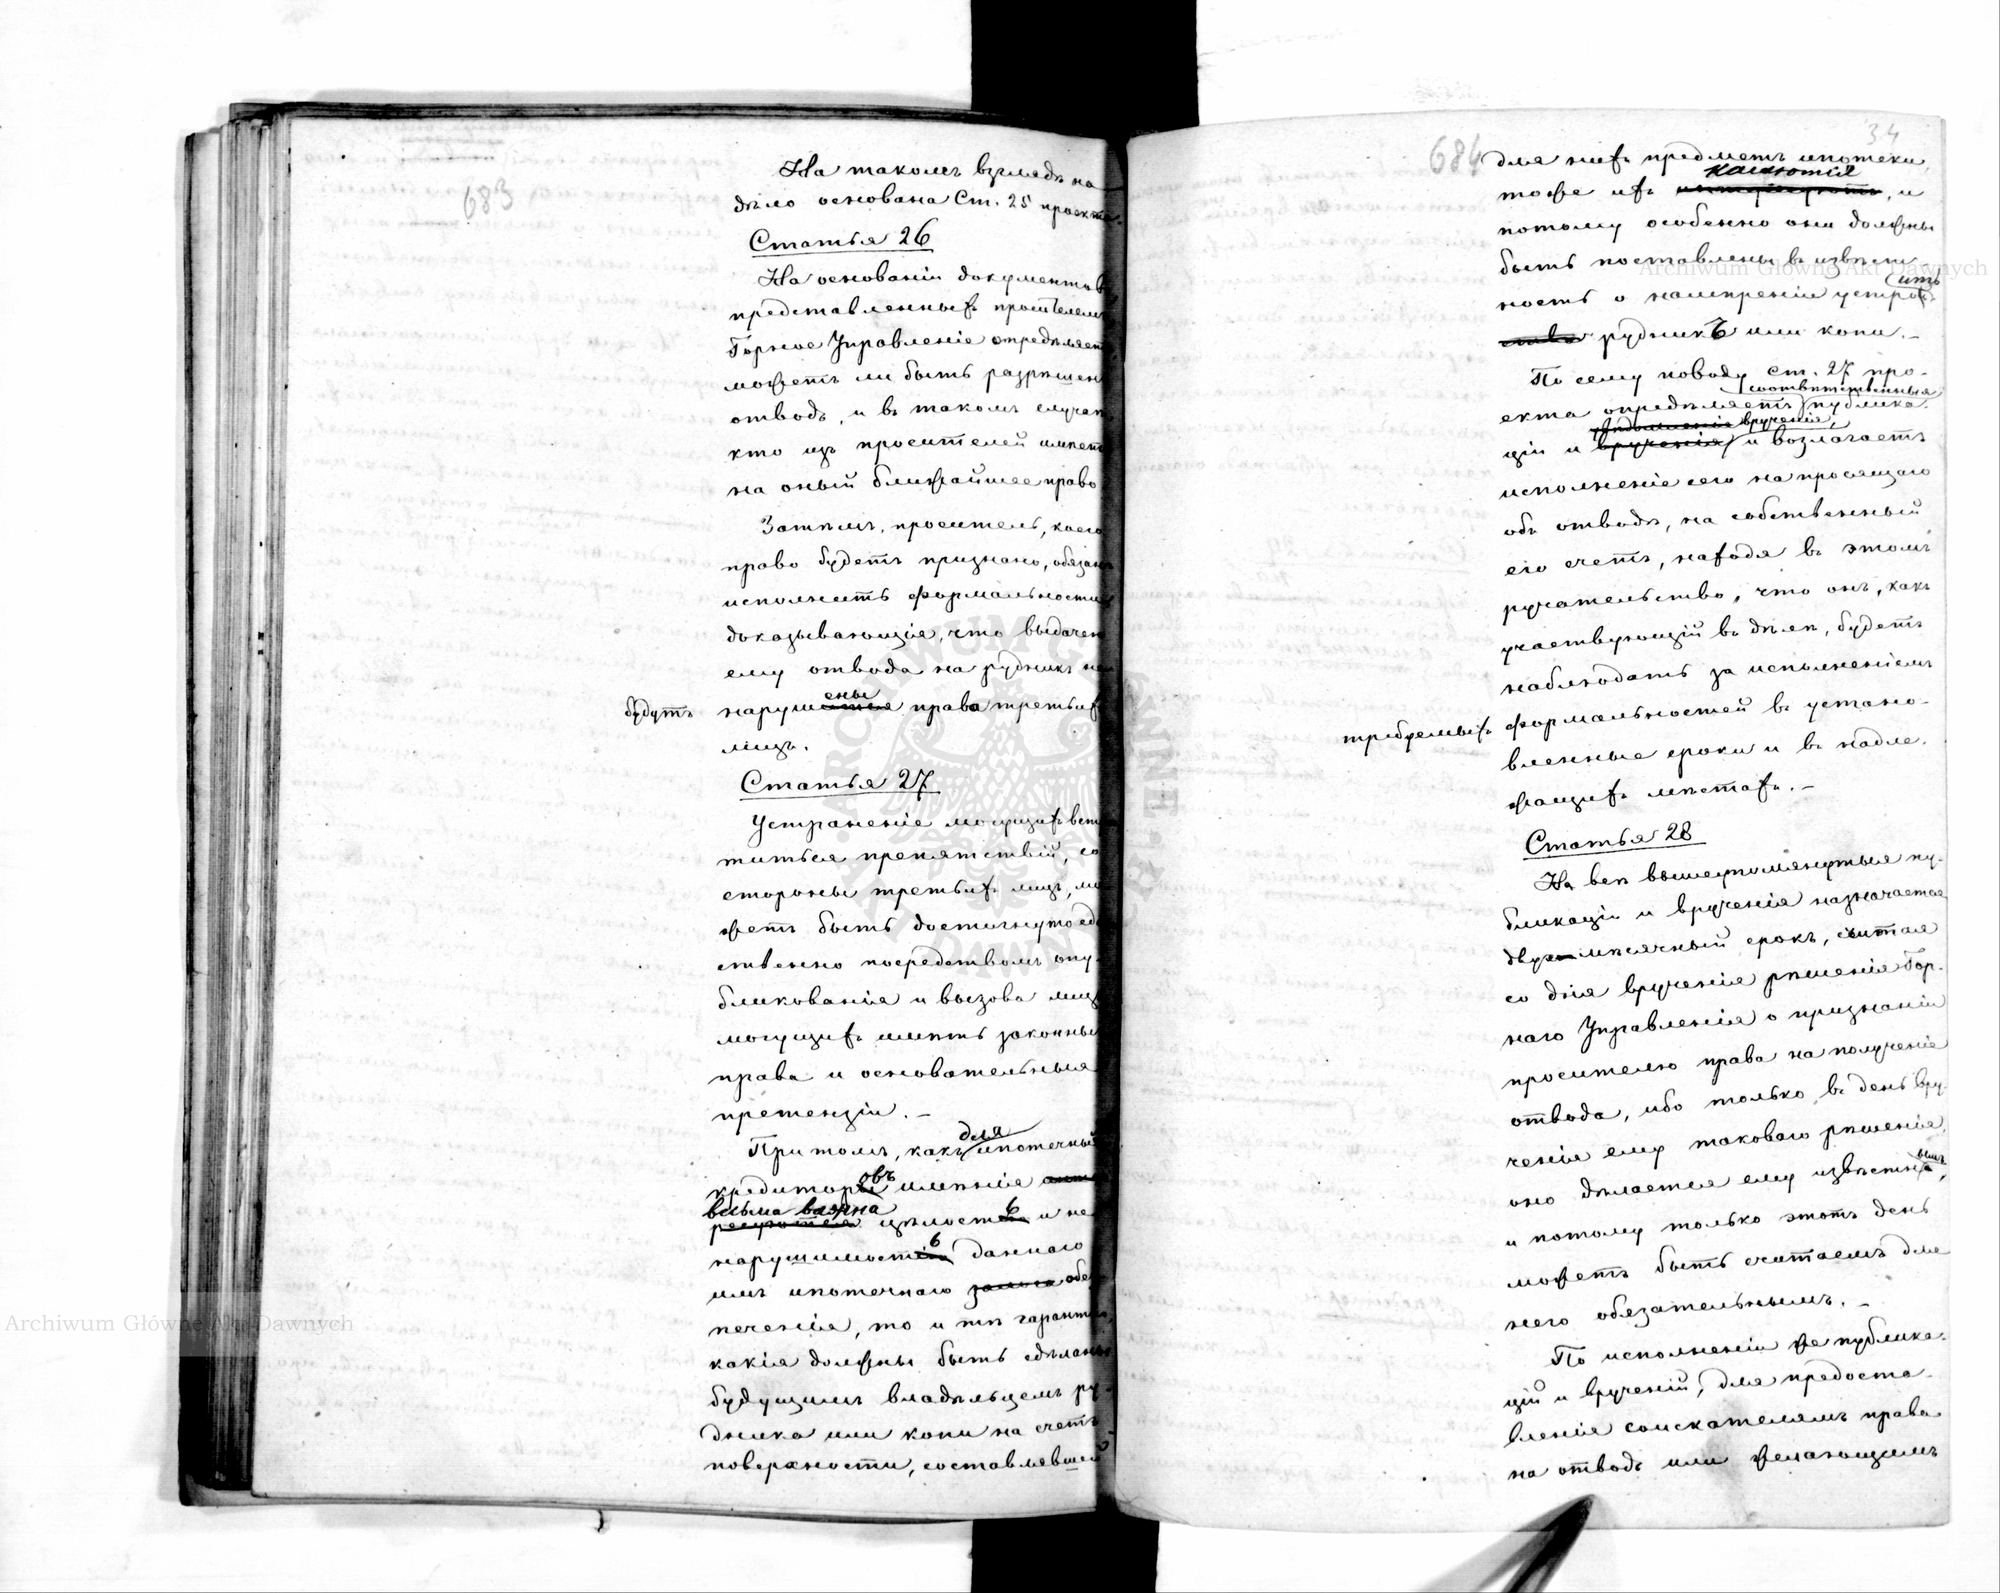 683
На такомъ взглядѣ на
дѣло основана Ст. 25 проекта.
Статья 26
На основаніи документовъ
представленныхъ просителемъ
Горное Управленіе опредѣляетъ
можетъ ли быть разрѣшенъ
отводъ, и въ такомъ случаѣ
кто изъ просителей имѣетъ
на оный ближайшее право
Затѣмъ, проситель, коего
право будетъ признано, обязанъ
исполнить формальности
доказывающія, что выдачею
ему отвода на рудникъ не
ены
будутъ нарушатся права третьихъ
лицъ.
Статья 27
Устраненіе могущихъ встрѣ
титься препятствій, со
стороны третьихъ лицъ, мо
жетъ быть достигнуто един
ственно посредствомъ опу
бликованія и вызова лицъ
могущихъ имѣть законныя
права и основательныя
претензіи. —
для
При томъ, какъ ипотечный
овъ
кредиторы имѣніе
весьма важна
цѣлость и не
нарушимость даннаго
имъ ипотечнаго залога обез
печенія, то и тѣ гарантіи,
какія должны быть сдѣланы
будущимъ владѣльцемъ ру-
дника или копи на счетъ
поверхности, составлявшей
684
34
для нихъ предметъ ипотеки,
касаются
тоже ихъ интересуютъ, и
потому особенно они должны
быть поставлены въ извѣст-
ить
ность о намѣреніи устро
ства рудникъ или копи. —
По сему поводу ст. 27 про-
соотвѣтственныя
екта опредѣляетъ публика-
врученія,
ціи и врученія и возлагаетъ
исполненіе сего на просящаго
объ отводѣ, на собственный
его счетъ, находя въ этомъ
ручательство, что онъ, какъ
участвующій въ дѣлѣ, будетъ
наблюдать за исполненіемъ
требуемыхъ формальностей въ устано-
вленные сроки и въ надле-
жащихъ мѣстахъ. —
Статья 28
На всѣ вышеупомянутыя пу-
бликаціи и врученія назначается
двухмѣсячный срокъ, считая
со дня врученія рѣшенія Гор-
наго Управленія о признаніи
просителю права на полученіе
отвода, ибо только въ день вру-
ченія ему таковаго рѣшенія,
ымъ
оно дѣлается ему извѣстно,
и потому только этотъ день
можетъ быть считаемъ для
него обязательнымъ. —
По исполненіи же публика-
цій и врученій, для предоста-
вленія соискателямъ права
на отводъ или желающимъ
Archiwum Główne Akt Dawnych
Archiwum Główne Akt Dawnych